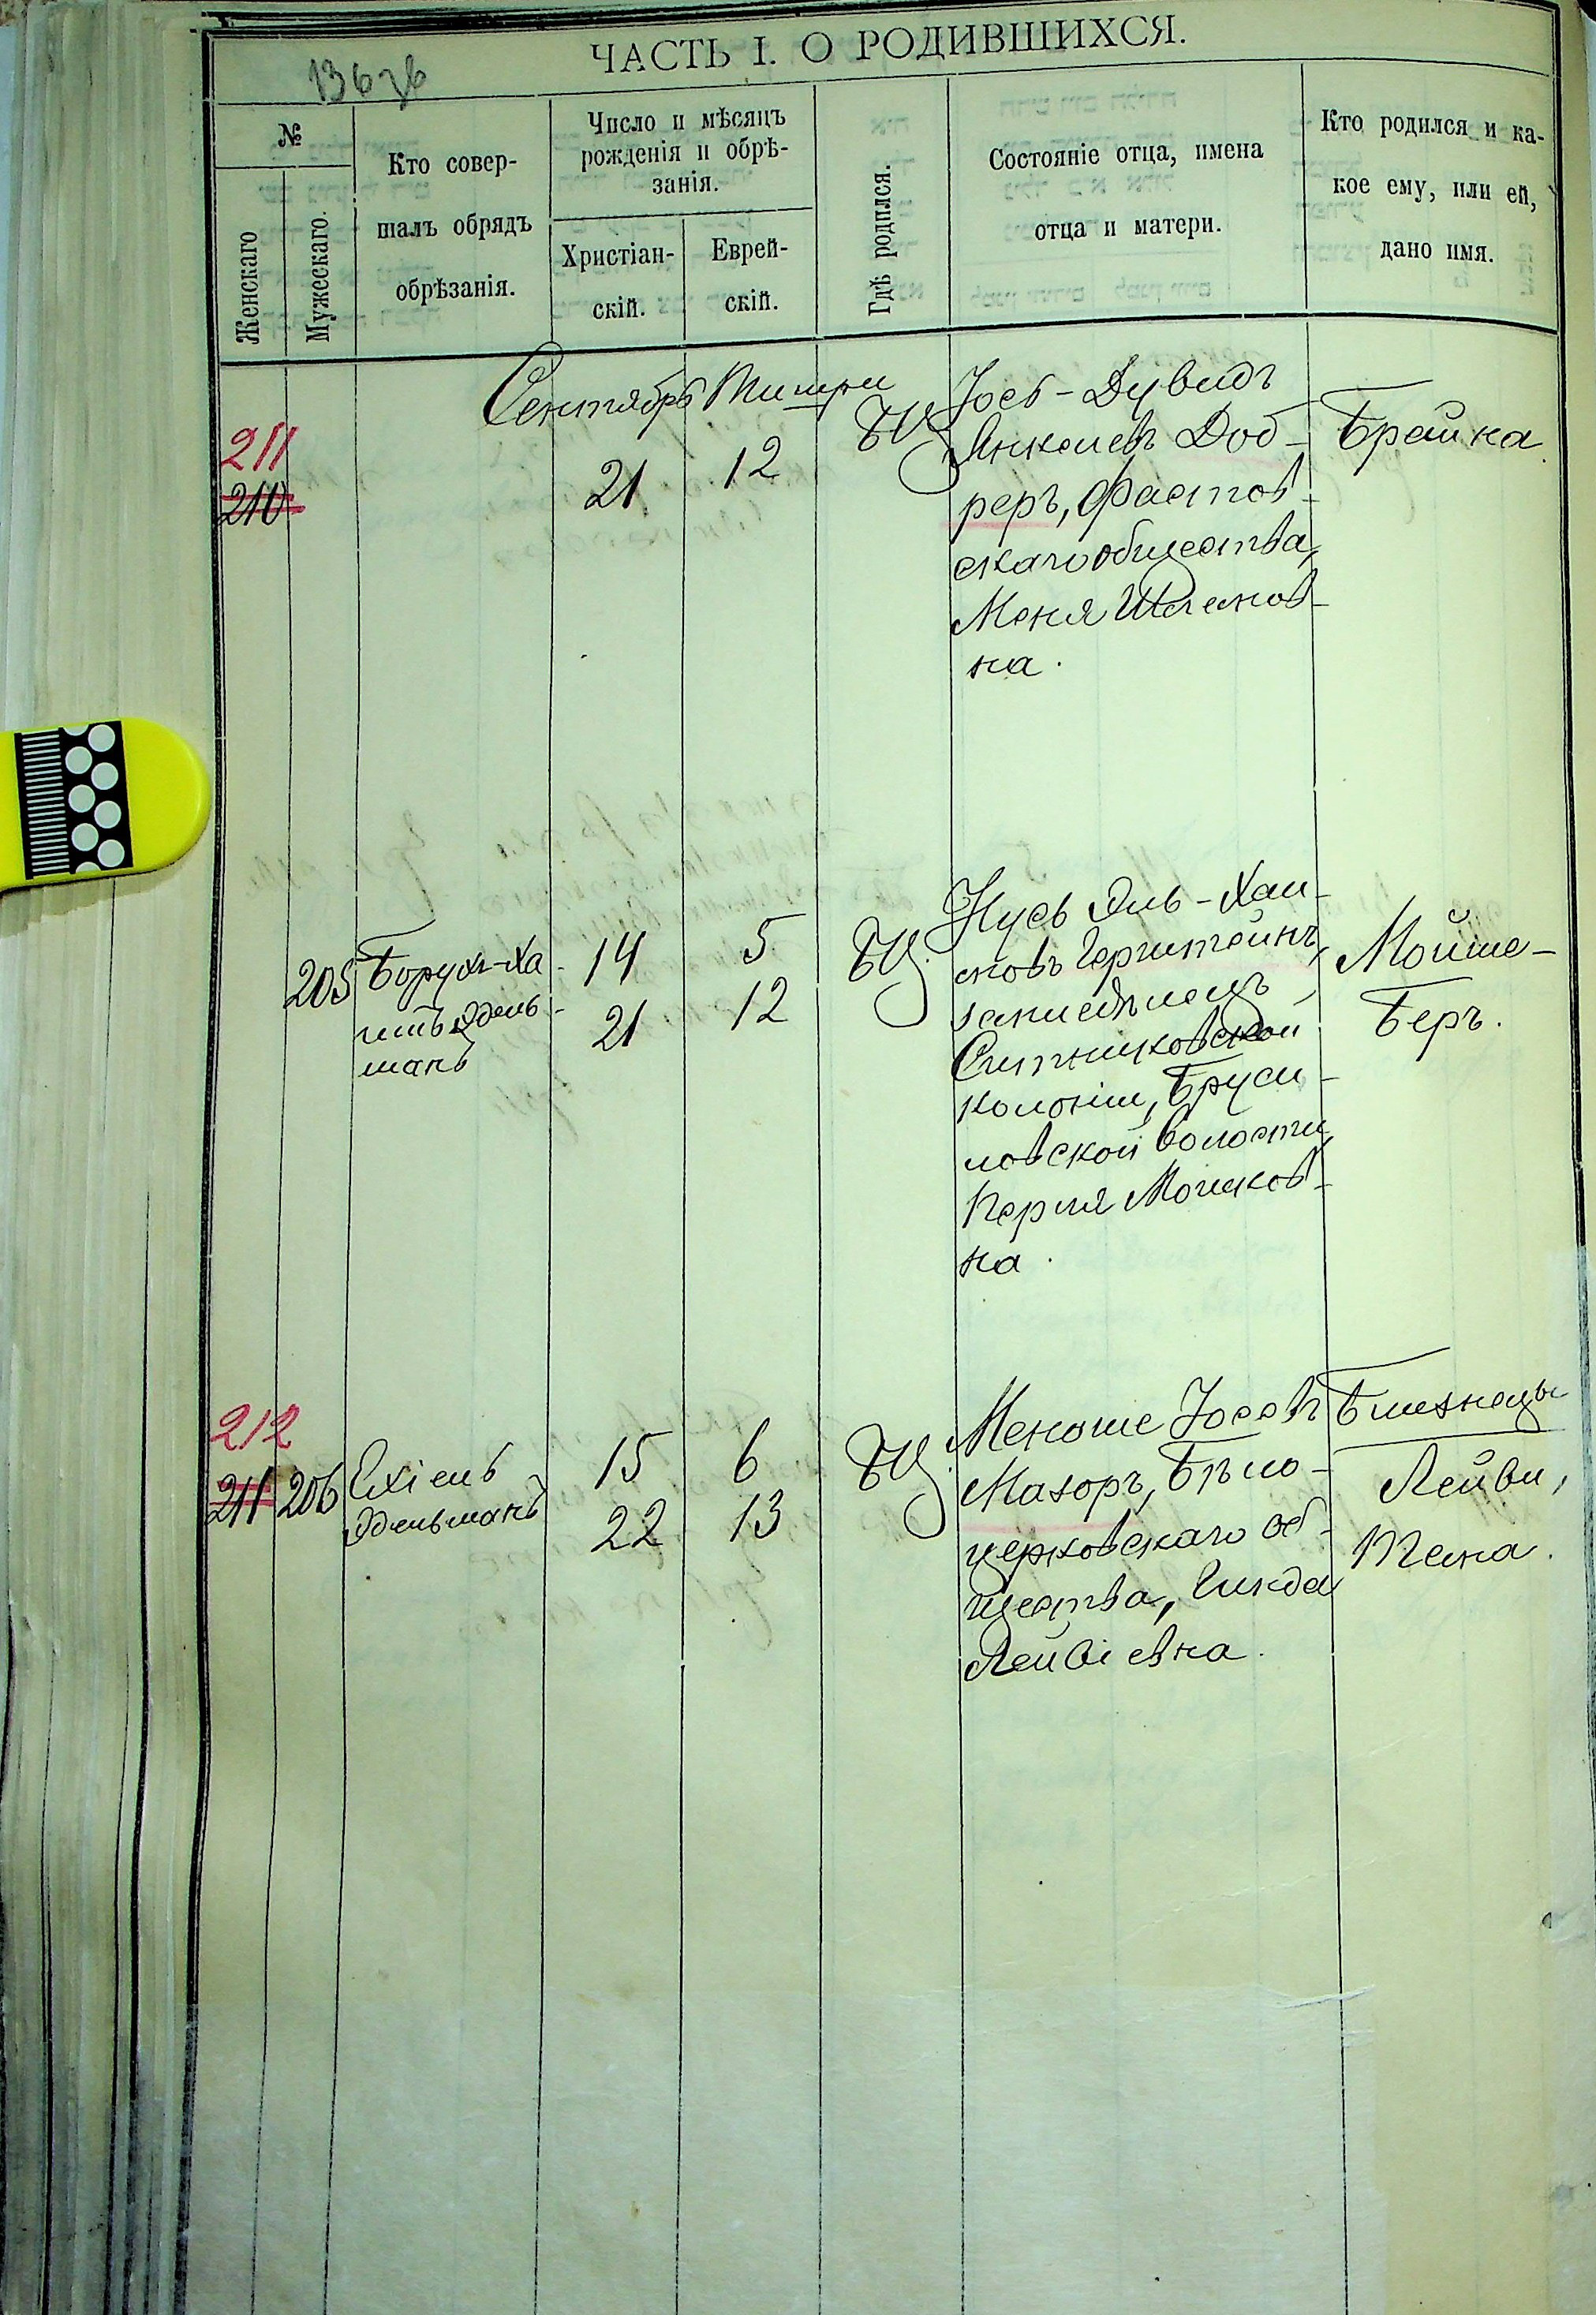 ЧАСТЬ I. О РОДИВШИХСЯ.
136
№
Женскаго
Мужескаго.
Кто совер-
шалъ обрядъ
обрѣзанія.
Число и мѣсяцъ
рожденія и обрѣ-
занія.
Христіан-
скій.
Еврей-
скій.
Гдѣ родился.
Состояніе отца, имена
отца и матери.
Кто родился и ка-
кое ему, или ей,
дано имя.
Сентябрь Тишри
211
210
21
12
БЦ
Іось-Дувидъ
Янкелевъ Доб-
реръ, Фастов-
скаго общества,
Меня
на.
Брайна.
205
Борухъ-Ха-
Эдель-
манъ
14
5
21
12
БЦ.
Нусь Эль-Хаи-
мовъ Герштейнъ,
Ситниковской
колоніи, Бруси-
ловской волости,
Перля Мошков-
на.
Мойше-
Беръ.
212
211
206
Ехіель
Эдельманъ
15
6
22
13
БЦ.
Меноше Іосевъ
Мазоръ, Бѣло-
церковскаго об-
щества, Гинда
Лейвіевна.
Близнецы
Лейви,